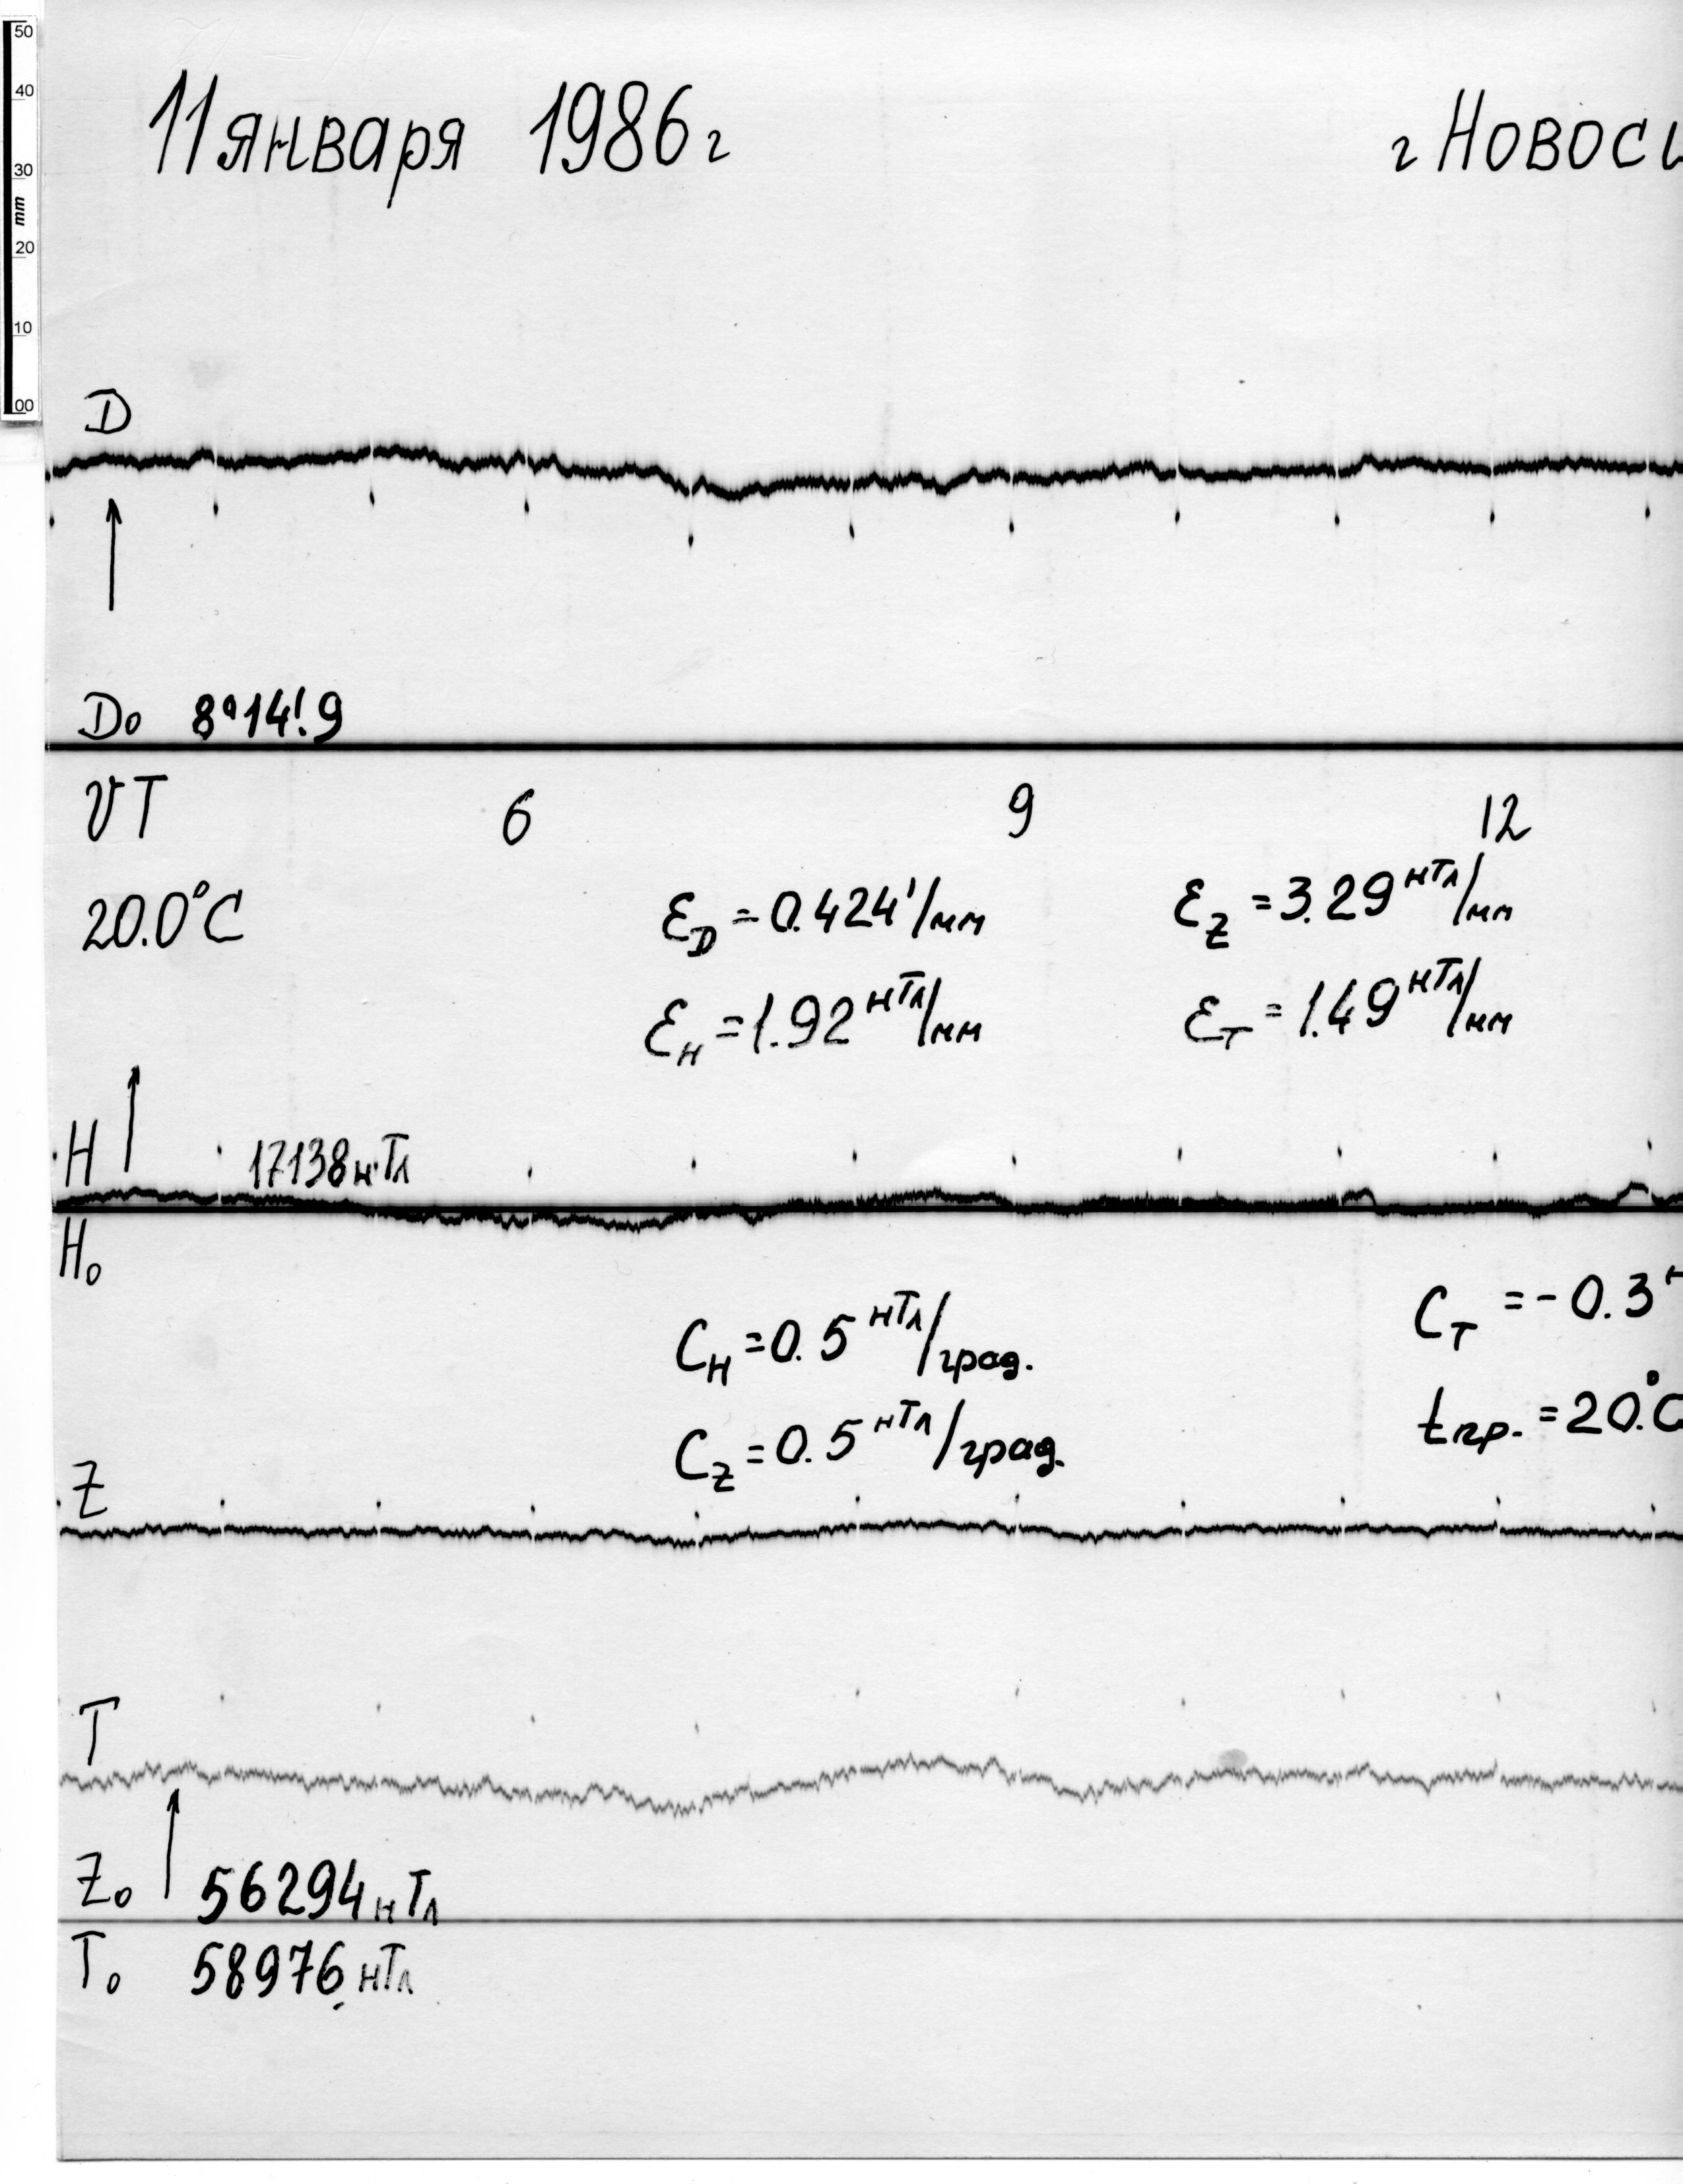 50
40
30
mm
20
10
00
11 января 1986 г
г Новоси
D
D₀ 8°14!9
UT 6 9 12
20.0°C
ε_D = 0.424'/мм
ε_Z = 3.29 нТл/мм
ε_H = 1.92 нТл/мм
ε_T = 1.49 нТл/мм
H 17138 нТл
H₀
C_H = 0.5 нТл/град.
C_T = -0.3 н
C_Z = 0.5 нТл/град.
tгр. = 20.°C
Z
T
Z₀ 56294 нТл
T₀ 58976 нТл